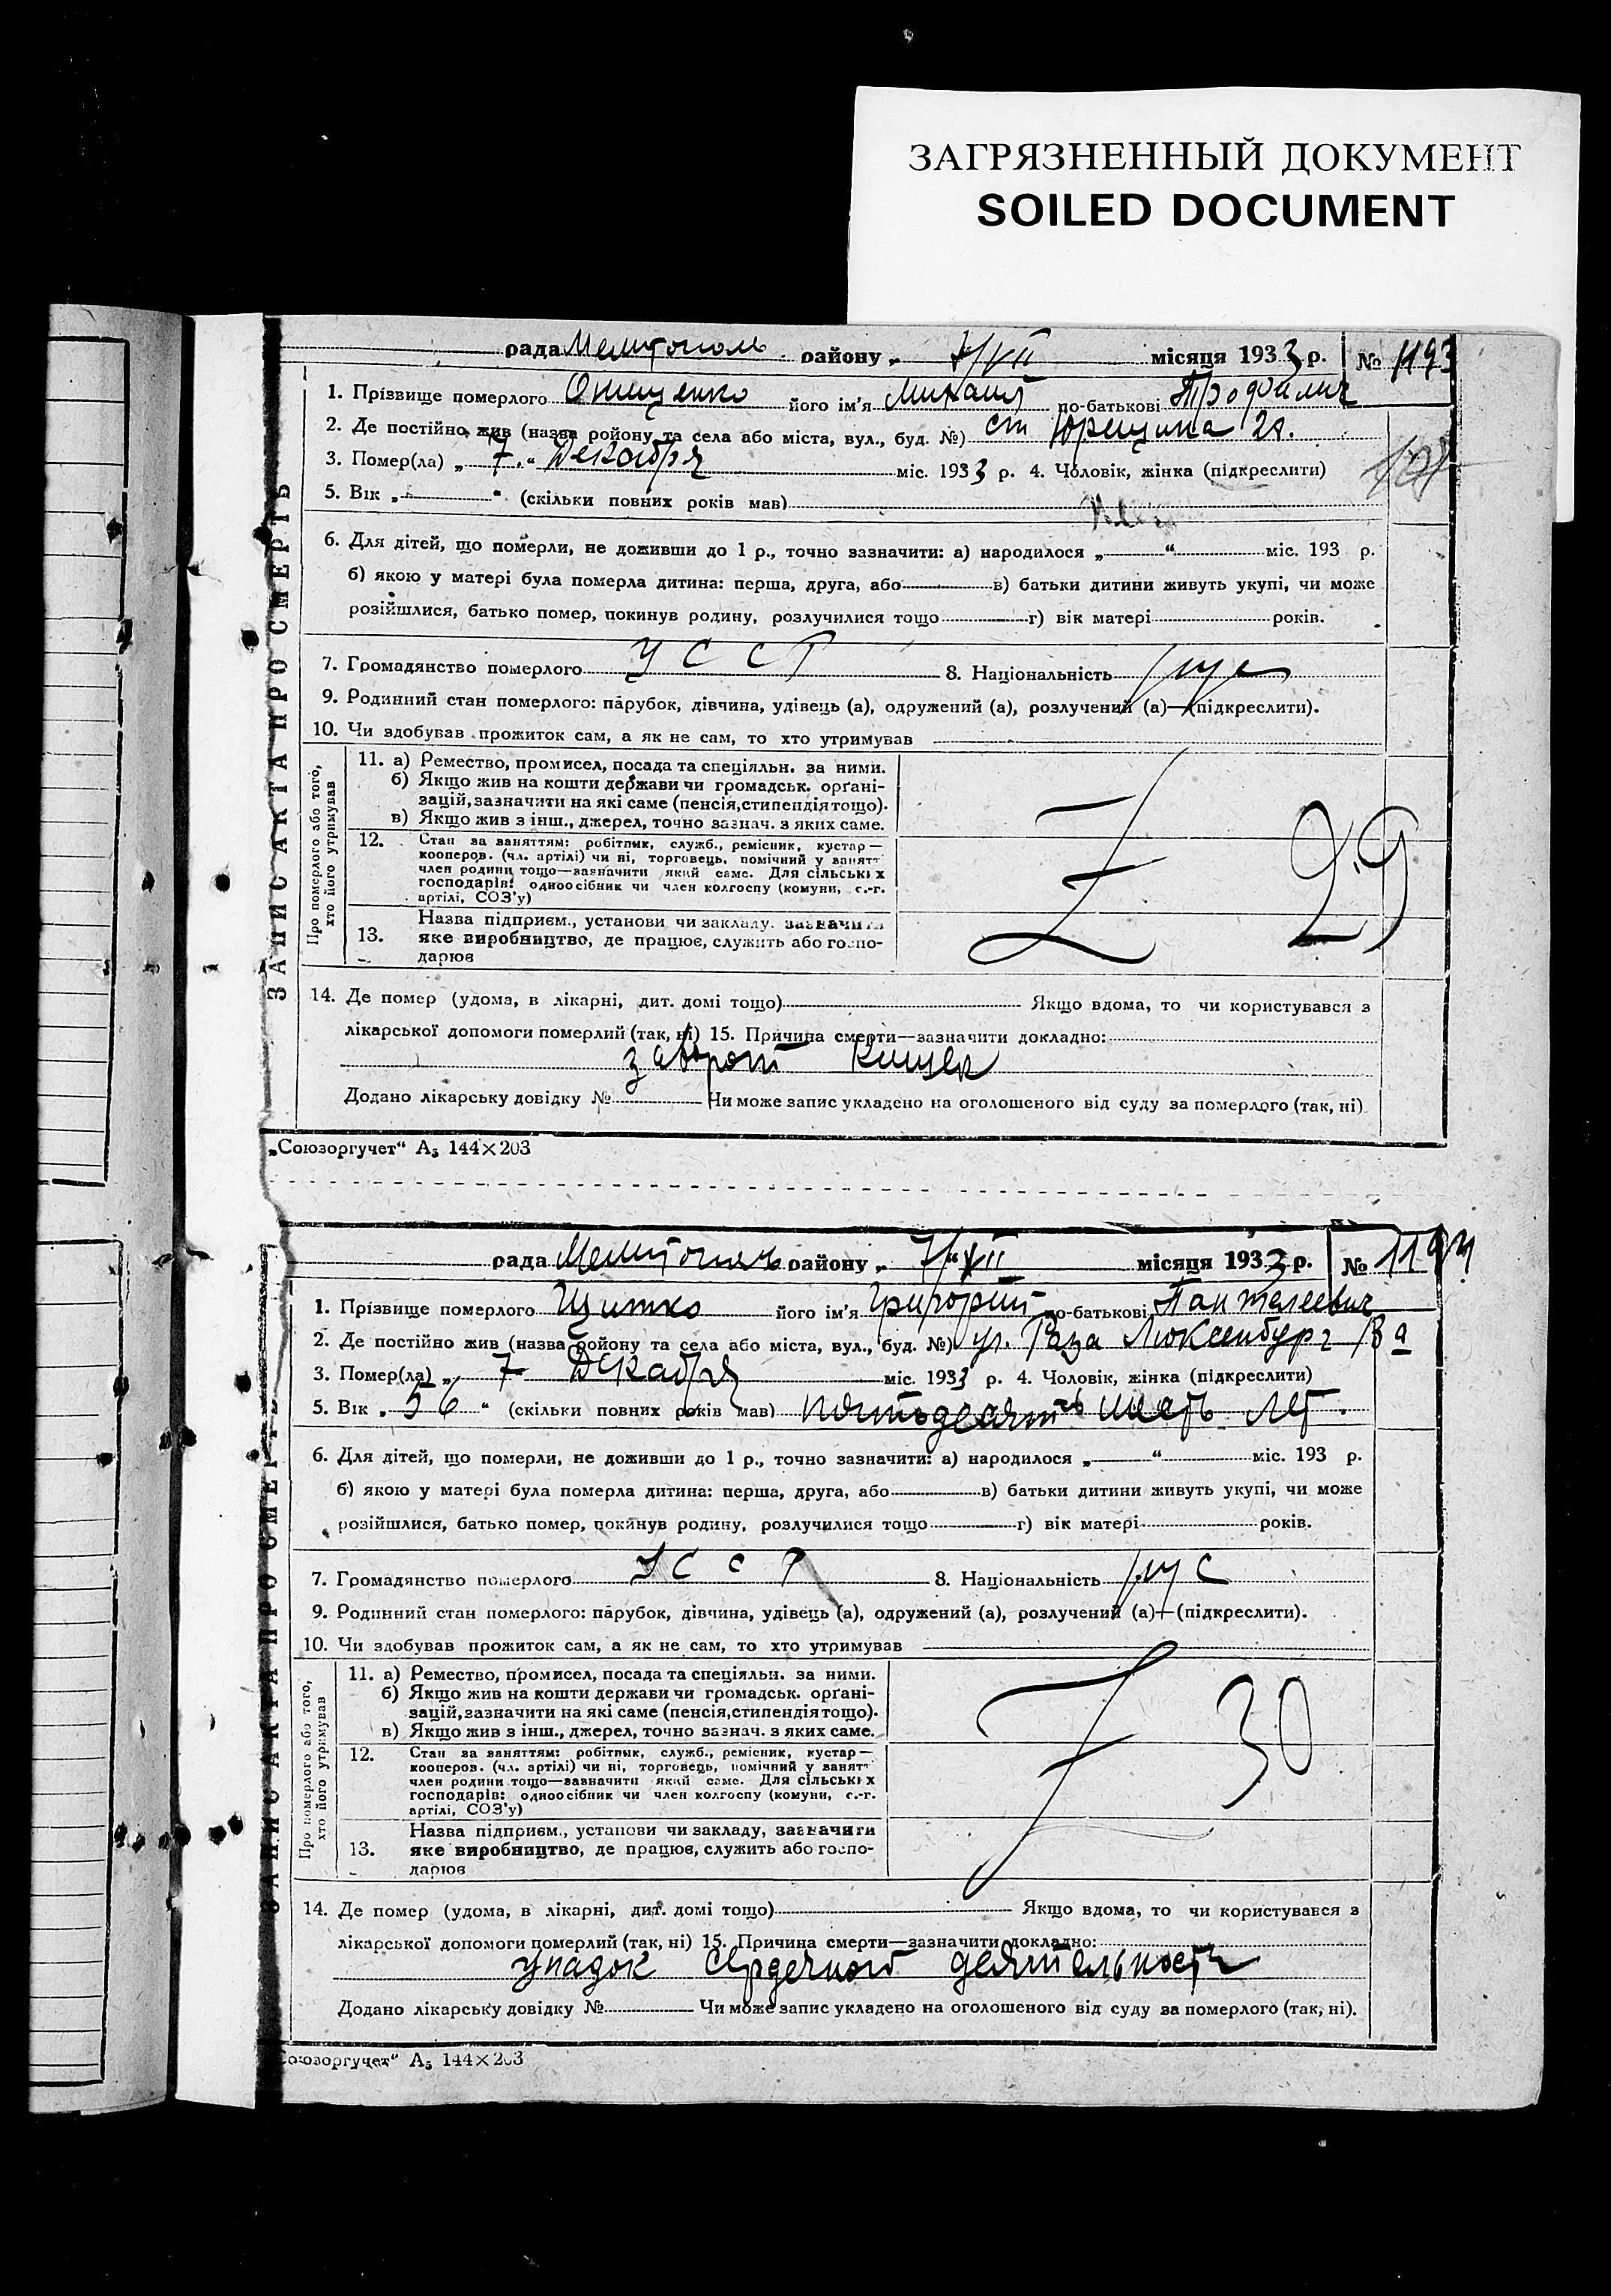 ЗАГРЯЗНЕННЫЙ ДОКУМЕНТ
SOILED DOCUMENT
ЗАПИС АКТА ПРО СМЕРТЬ
рада Мелитополь району „ 7/XII місяця 1933 р. № 1193
1. Прізвище померлого Онищенко його ім'я Михаил по-батькові
2. Де постійно жив (назва ройону та села або міста, вул., буд. №) ст 28.
3. Помер(ла) „ 7 “ Декабря міс. 1933 р. 4. Чоловік, жінка (підкреслити)
5. Вік „ “ (скільки повних років мав)
6. Для дітей, що померли, не доживши до 1 р., точно зазначити: а) народилося „ “ міс. 193 р.
б) якою у матері була померла дитина: перша, друга, або в) батьки дитини живуть укупі, чи може
розійшлися, батько помер, покинув родину, розлучилися тощо г) вік матері років.
7. Громадянство померлого УССР 8. Національність рус
9. Родинний стан померлого: парубок, дівчина, удівець (а), одружений (а), розлучений (а)—(підкреслити).
10. Чи здобував прожиток сам, а як не сам, то хто утримував
Про померлого або того, хто його утримував
11. а) Ремество, промисел, посада та спеціяльн. за ними.
б) Якщо жив на кошти держави чи громадськ. орґані-
зацій, зазначити на які саме (пенсія, стипендія тощо).
в) Якщо жив з інш., джерел, точно зазнач. з яких саме.
12. Стан за заняттям: робітник, служб., ремісник, кустар—
кооперов. (чл. артілі) чи ні, торговець, помічний у занятт
член родини тощо—зазначити який саме. Для сільських
господарів: одноосібник чи член колгоспу (комуни, с.-г.
артілі, СОЗ'у)
29
Назва підприєм., установи чи закладу, зазначити
13. яке виробництво, де працює, служить або госпо-
дарює
14. Де помер (удома, в лікарні, дит. домі тощо) Якщо вдома, то чи користувався з
лікарської допомоги померлий (так, ні) 15. Причина смерти—зазначити докладно:
заворот кишек
Додано лікарську довідку № Чи може запис укладено на оголошеного від суду за померлого (так, ні)
„Союзоргучет“ А5 144×203
ЗАПИС АКТА ПРО СМЕРТЬ
рада Мелитополь району „ 7/XII місяця 1933 р. № 1194
1. Прізвище померлого Щитко його ім'я Григорий по-батькові Пантелеевич
2. Де постійно жив (назва ройону та села або міста, вул., буд. №) ул. Роза Люксенбург 18 а
3. Помер(ла) „ 7 Декабря міс. 1933 р. 4. Чоловік, жінка (підкреслити)
5. Вік „ 56 “ (скільки повних років мав) пятьдесят шесть лет.
6. Для дітей, що померли, не доживши до 1 р., точно зазначити: а) народилося „ “ міс. 193 р.
б) якою у матері була померла дитина: перша, друга, або в) батьки дитини живуть укупі, чи може
розійшлися, батько помер, покинув родину, розлучилися тощо г) вік матері років.
7. Громадянство померлого УССР 8. Національність рус
9. Родинний стан померлого: парубок, дівчина, удівець (а), одружений (а), розлучений (а)—(підкреслити).
10. Чи здобував прожиток сам, а як не сам, то хто утримував
Про померлого або того, хто його утримував
11. а) Ремество, промисел, посада та спеціяльн. за ними.
б) Якщо жив на кошти держави чи громадськ. орґані-
зацій, зазначити на які саме (пенсія, стипендія тощо).
в) Якщо жив з інш., джерел, точно зазнач. з яких саме.
12. Стан за заняттям: робітник, служб., ремісник, кустар—
кооперов. (чл. артілі) чи ні, торговець, помічний у занятт
член родини тощо—зазначити який саме. Для сільських
господарів: одноосібник чи член колгоспу (комуни, с.-г.
артілі, СОЗ'у)
30
Назва підприєм., установи чи закладу, зазначити
13. яке виробництво, де працює, служить або госпо-
дарює
14. Де помер (удома, в лікарні, дит. домі тощо) Якщо вдома, то чи користувався з
лікарської допомоги померлий (так, ні) 15. Причина смерти—зазначити докладно:
упадок сердечной деятельность
Додано лікарську довідку № Чи може запис укладено на оголошеного від суду за померлого (так, ні).
оюзоргучет“ А5 144×203